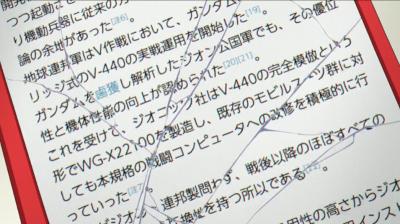 開発
つつ起動
り機動兵器に従来の
論の余地があった。
地球連邦軍はV作戦において、ガンダム
リンジオのV-440の実戦運用を開始した[19]
ガンダムを鹵獲し解析したジオン公国軍でも、その優位
と機体性能の向上が認められた。[20][21]
これを受けて、ジオニック社はV-440の完全模倣という
形でWG-X22100を製造し、既存のモビルスーツ群に対
しても本規格の戦闘コンピュータへの改修を積極的に行
っていった。
ジオン、連邦製問わず、戦後以降のほぼすべての
を持つ所以である。
性の高さからジオ